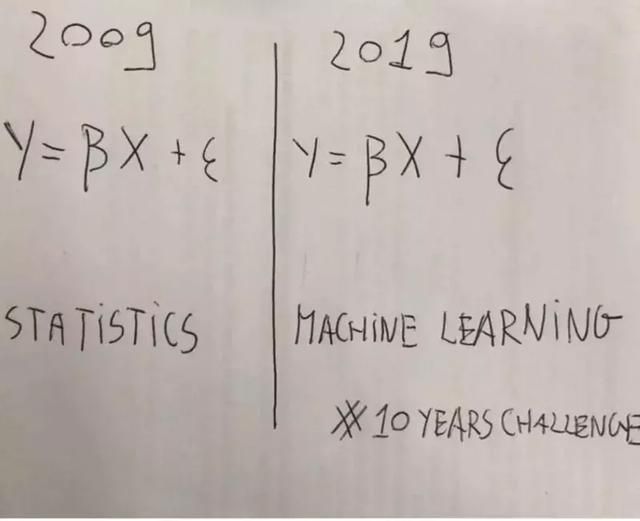 2009
Y = βX + ε
STATISTICS
2019
Y = βX + ε
MACHINE LEARNING
# 10 YEARS CHALLENGE